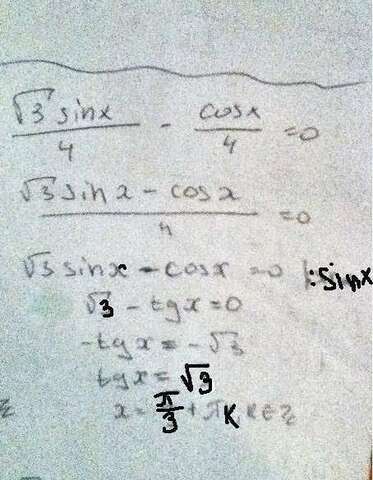 √3 sinx / 4 - cosx / 4 = 0
√3 sin x - cosx / 4 = 0
√3 sinx - cosx = 0 |:sinx
√3 - tgx = 0
-tgx = -√3
tgx = √3
x = π/3 + πK, k∈Z